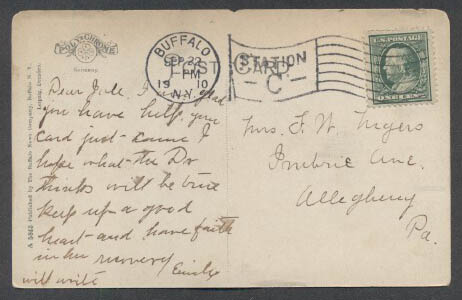 POLYCHROME
Germany.
BUFFALO
SEP 22
PM
19 10
N.Y.
POST CARD
STATION
C
U.S. POSTAGE
ONE CENT
A 5862 Published by The Buffalo News Company, Buffalo N. Y.,
Leipzig, Dresden.
Dear I am glad
you have help, your
card just came I
hope what the Dr
thinks will be true
keep up a good
heart and have faith
in her recovery
will write Emily
Mrs. F. W.
Imbrie Ave.
Allegheny
Pa.